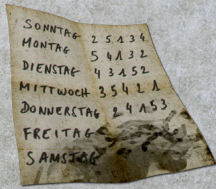 SONNTAG 2 5 1 3 4
MONTAG 5 4 1 3 2
DIENSTAG 4 3 1 5 2
MITTWOCH 3 5 4 2 1
DONNERSTAG 2 4 1 5 3
FREITAG
SAMSTAG